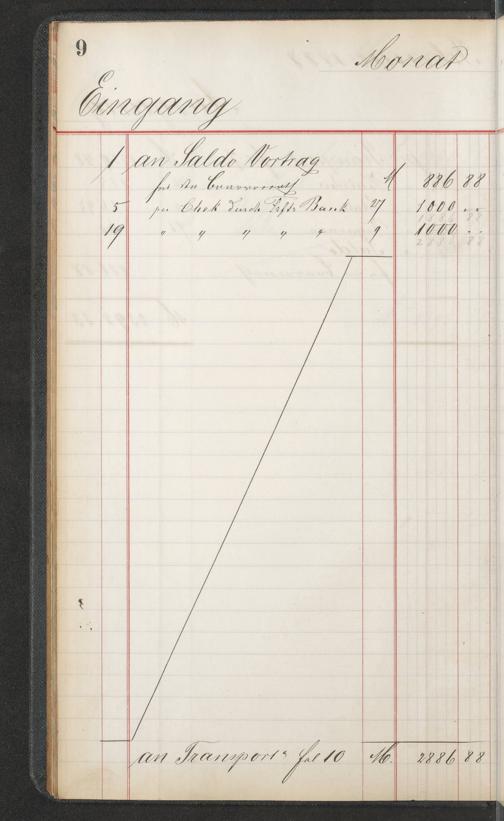 9
Monat
Eingang
1 an Saldo Vortrag
M 886 88
5 per Chek durch Bank 27 1000 ..
19 " " " " " 9 1000 ..
2886 88
an Transport fol 10 M. 2886 88